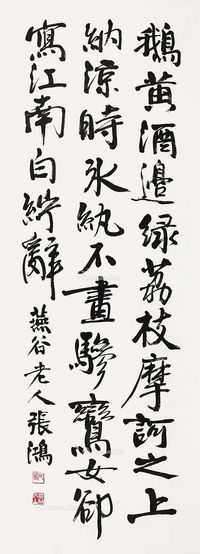 鵝黄酒邊绿荔枝摩訶之上
納涼時氷紈不畫驂鸞女卻
寫江南白紵辭
燕谷老人張鴻